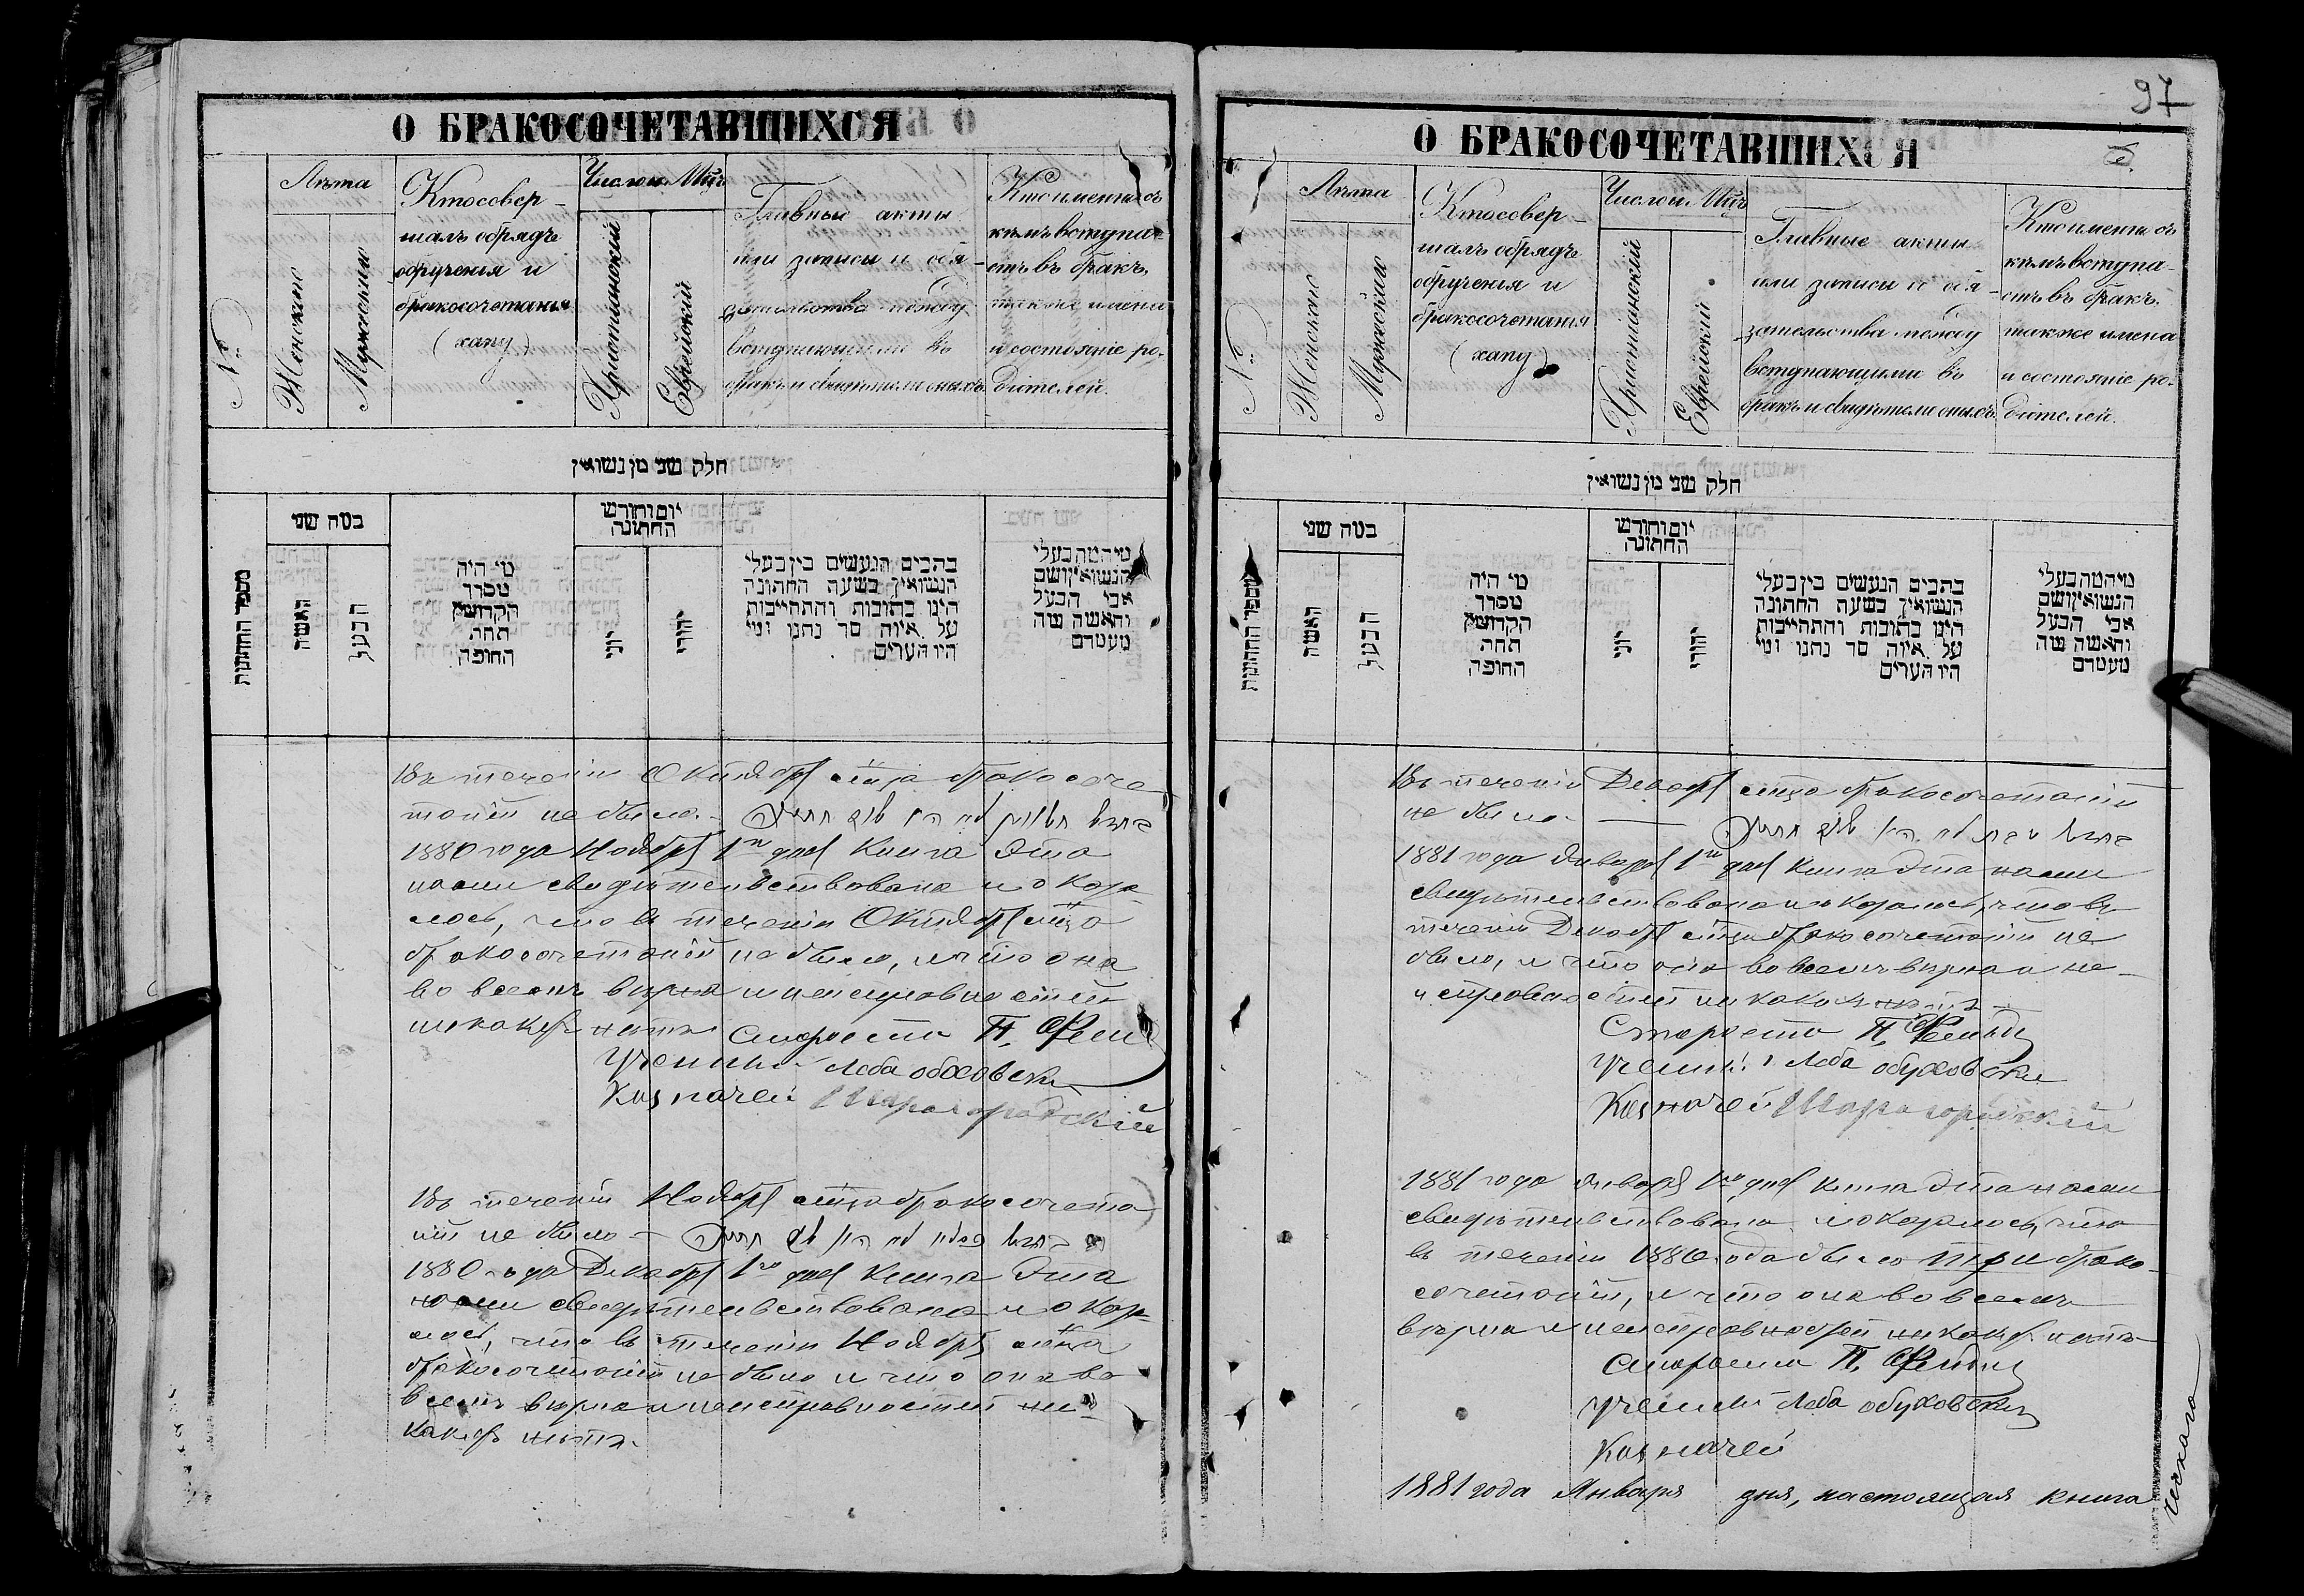 О БРАКОСОЧЕТАВШИХСЯ
№
Лѣта
Женского
Мужеского
Кто совер-
шалъ обрядъ
обручения и
бракосочетания
(хапу)
Число и Мцъ
Христианский
Еврейский
Главные акты
или записи и обя-
зательства между
вступающими въ
бракъ и свидѣтели оныхъ
Кто именно съ
кѣмъ вступа-
етъ въ бракъ,
также имена
и состояніе ро-
дителей.
חלק שני מן נשואין
מספר החתונות
כמה שני
האשה
הבעל
מי היה
מסדר
הקדושין
תחת
החופה
יום וחודש
החתונה
יוני
יהודי
כתבים הנעשים בין בעלי
הנשואין בשעת החתונה
הינו כתובות והתחייבות
על איזה סך נתנו ומי
היו הערים
מי המה בעלי
הנשואין ושם
אבי הבעל
והאשה ומה
מעמדם
Въ теченіи Октября мѣца бракосоче-
таній не было.
1880 года Ноября 1го дня Книга эта
нами свидѣтельствована и окаra-
лось, что въ теченіи Октября мѣца
бракосочетаній не было, и что она
во всемъ вѣрна и неисправностей
никакихъ нѣтъ Староста П. Фельд
Ученый Леба обуховски
Казначей Шарагородский
Въ теченіи Ноября мѣца бракосочета-
ній не было —
1880 года Декабря 1го дня Книга эта
нами свидѣтельствована и оказа-
лось, что въ теченіи Ноября мѣца
бракосочетаній не было и что она во
всемъ вѣрна и неисправностей ни-
какихъ нѣтъ.
97
О БРАКОСОЧЕТАВШИХСЯ
№
Лѣта
Женского
Мужеского
Кто совер-
шалъ обрядъ
обручения и
бракосочетания
(хапу)
Число и Мцъ
Христианский
Еврейский
Главные акты
или записи и обя-
зательства между
вступающими въ
бракъ и свидѣтели оныхъ
Кто именно съ
кѣмъ вступа-
етъ въ бракъ.
также имена
и состояніе ро-
дителей.
חלק שני מן נשואין
מספר החתונות
כמה שני
האשה
הבעל
מי היה
מסדר
הקדושין
תחת
החופה
יום וחודש
החתונה
יוני
יהודי
כתבים הנעשים בין בעלי
הנשואין בשעת החתונה
הינו כתובות והתחייבות
על איזה סך נתנו ומי
היו הערים
מי המה בעלי
הנשואין ושם
אבי הבעל
והאשה ומה
מעמדם
Въ теченіи Декабря мѣца бракосочетаній
не было. —
1881 года Января 1го дня Книга эта нами
свидѣтельствована и оказалось, что въ
теченіи Декабря мѣца бракосочетаній не
было, и что она во всемъ вѣрна и не-
исправностей никакихъ нѣтъ
Староста П. Фельд
Ученый Леба обуховски
Казначей Шарагородский
1881 года Января 1го дня Книга эта нами
свидѣтельствована и оказалось, что
въ теченіи 1880 года было три брако-
сочетаній, и что она во всемъ
вѣрна и неисправностей никакихъ нѣтъ
Староста П. Фельд
Ученый Леба обуховски
Казначей
1881 года Января дня, настоящая книга